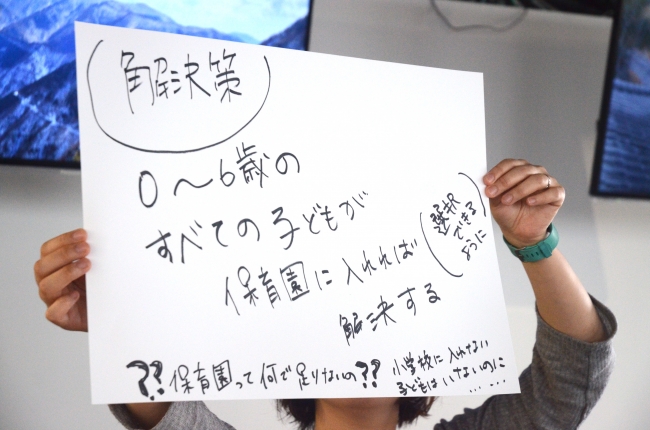 解決策
0〜6歳の
すべての子どもが
保育園に入れれば
(選択
できる
ように)
解決する
??保育園って何で足りないの??
小学校に入れない
子どもはいないのに
……